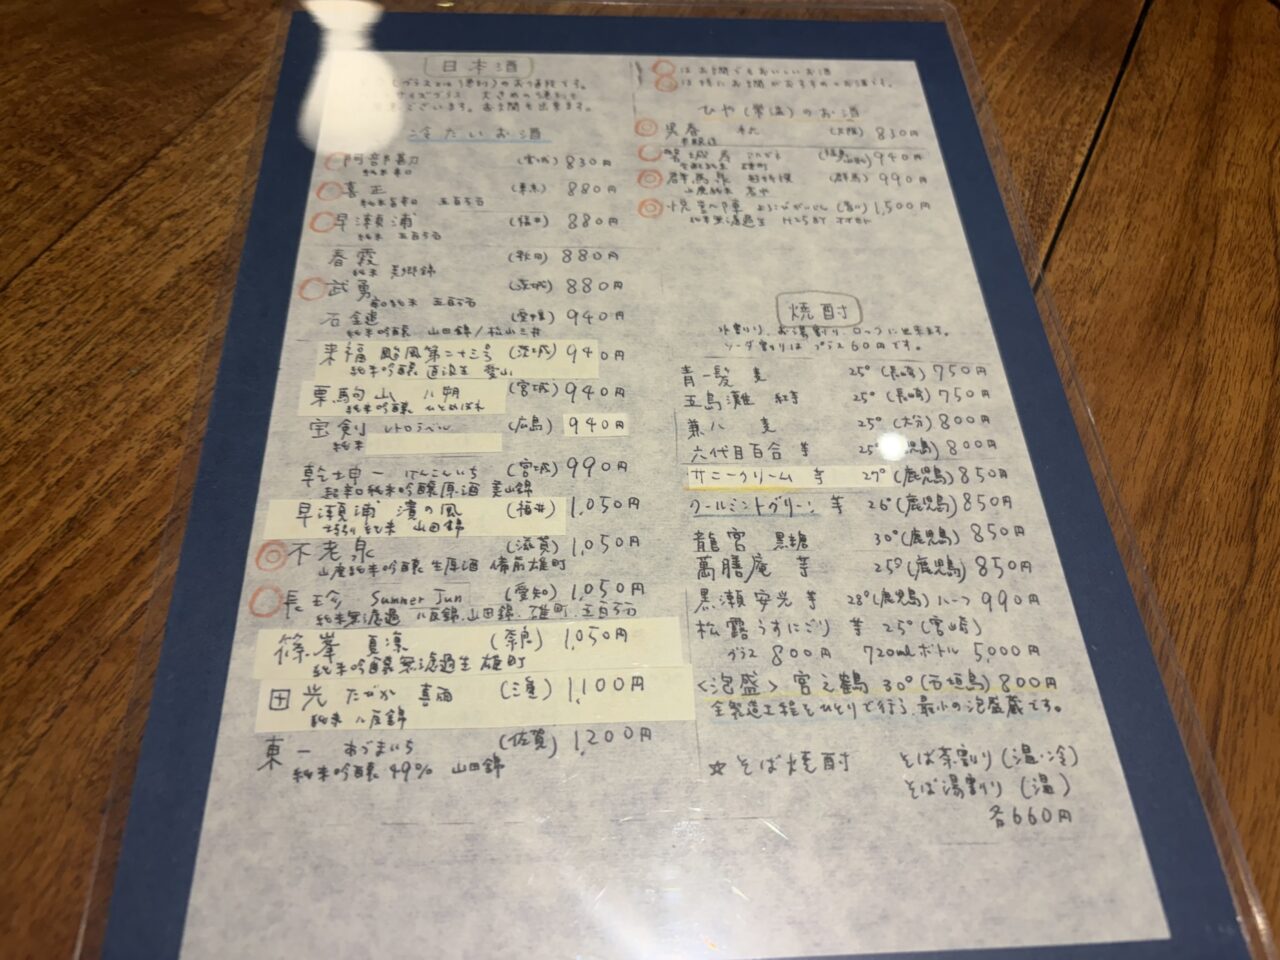 日本酒
のお値段です。
ございます。お燗も出来ます。
冷たいお酒
阿部勘 (宮城) 830円
純米辛口
喜正 (東京) 880円
純米吟醸 五百万石
早瀬浦 (福井) 880円
純米 五百万石
春霞 (秋田) 880円
純米 美郷錦
武勇 (茨城) 880円
辛口純米 五百万石
石鎚 (愛媛) 940円
純米吟醸 山田錦/松山三井
来福 颱風第二十三号 (茨城) 940円
純米吟醸 直汲生 愛山
栗駒山 八朔 (宮城) 940円
純米吟醸 ひとめぼれ
宝剣 レトロラベル (広島) 940円
純米
乾坤一 けんこんいち (宮城) 990円
超辛口純米吟醸原酒 美山錦
早瀬浦 濱の風 (福井) 1,050円
純米 山田錦
不老泉 (滋賀) 1,050円
山廃純米吟醸 生原酒 備前雄町
長珍 Summer Jun (愛知) 1,050円
純米無濾過 八反錦、山田錦、雄町、五百万石
篠峯 夏凛 (奈良) 1,050円
純米吟醸無濾過生 雄町
田光 たびか 真雨 (三重) 1,100円
純米 八反錦
東一 あづまいち (佐賀) 1,200円
純米吟醸 49% 山田錦
はお燗でもおいしいお酒
は特にお燗がおすすめのお酒です。
ひや(常温)のお酒
呉春 (大阪) 830円
本醸造
磐城壽 940円
群馬泉 (群馬) 990円
山廃純米
悦凱陣 よろこびがいじん (香川) 1,500円
純米無濾過生 H25BY オオセト
焼酎
水割り、お湯割り、ロックに出来ます。
ソーダ割りは プラス60円です。
青一髪 麦 25° (長崎) 750円
五島灘 紅芋 25° (長崎) 750円
兼八 麦 25° (大分) 800円
六代目百合 芋 25° (鹿児島) 800円
サニークリーム 芋 27° (鹿児島) 850円
クールミントグリーン 芋 26° (鹿児島) 850円
龍宮 黒糖 30° (鹿児島) 850円
萬膳庵 芋 25° (鹿児島) 850円
黒瀬安光 芋 28° (鹿児島) ハーフ 990円
松露うすにごり 芋 25° (宮崎)
グラス 800円 720mlボトル 5,000円
<泡盛> 宮之鶴 30° (石垣島) 800円
全製造工程をひとりで行う、最小の泡盛蔵です。
☆そば焼酎 そば茶割り (温・冷)
そば湯割り (温)
各660円